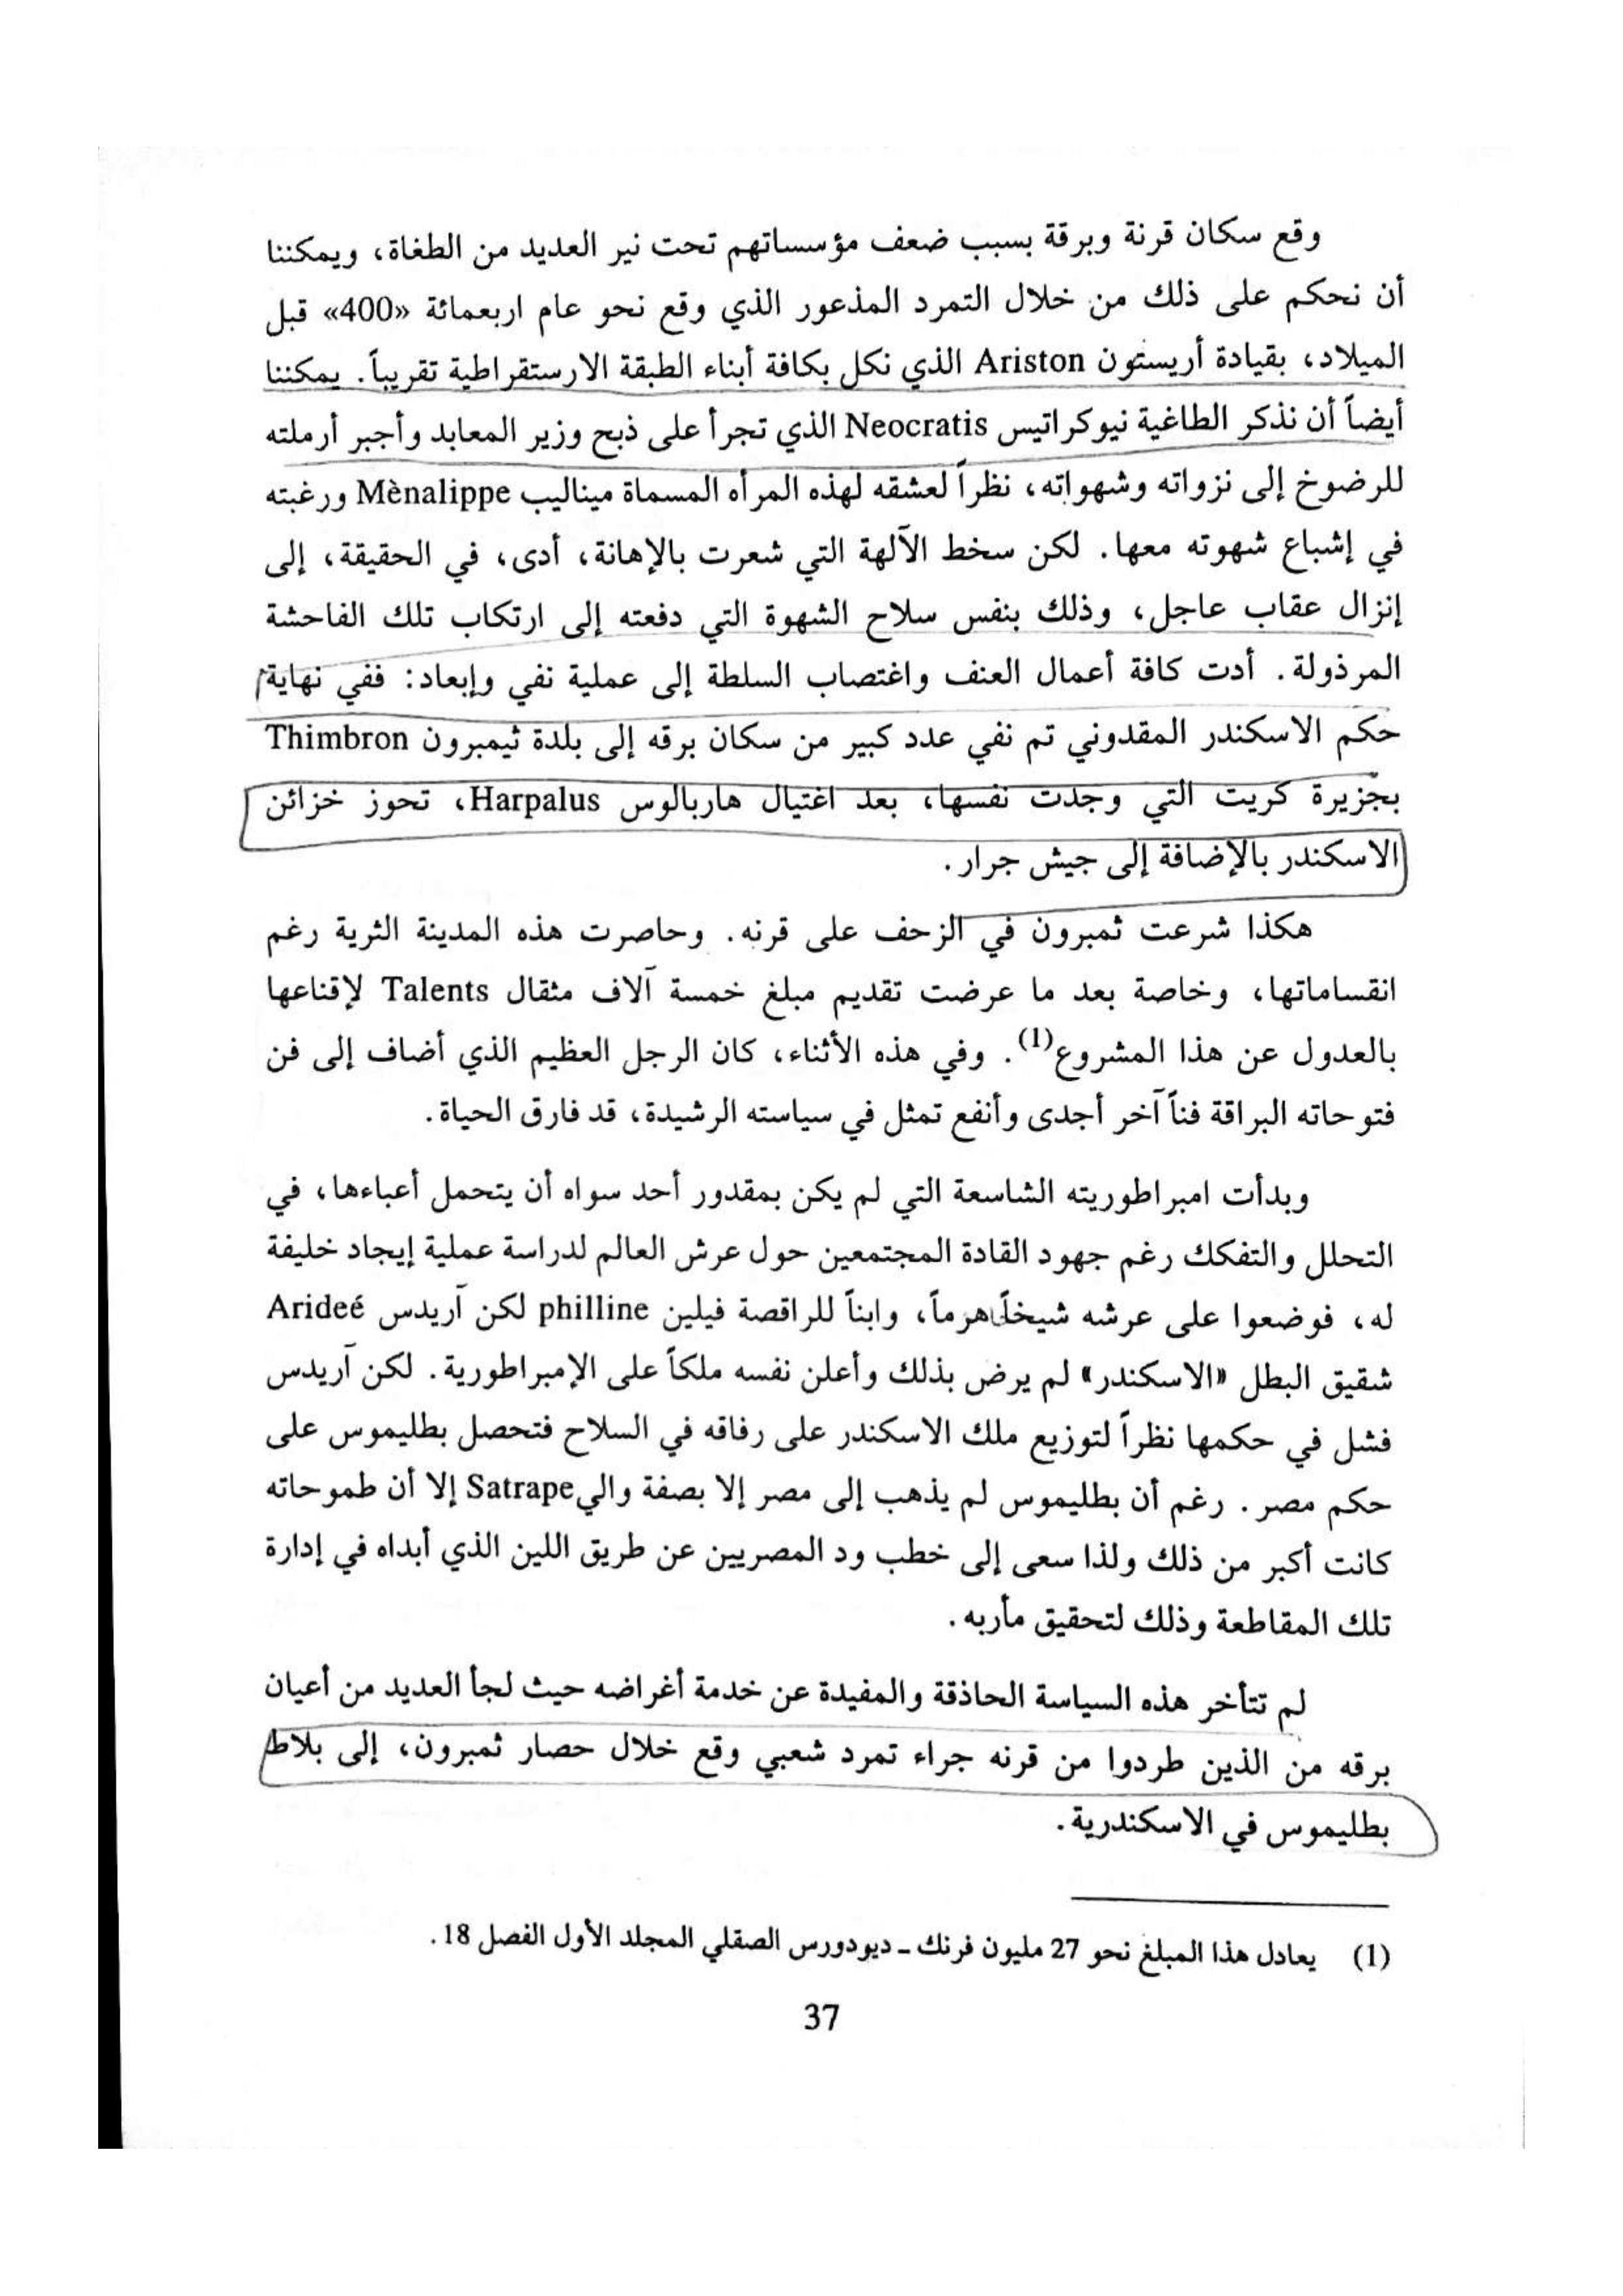 وقع سكان قرنة وبرقة بسبب ضعف مؤسساتهم تحت نير العديد من الطغاة، ويمكننا
أن نحكم على ذلك من خلال التمرد المذعور الذي وقع نحو عام اربعمائة «400» قبل
الميلاد، بقيادة أريستون Ariston الذي نكل بكافة أبناء الطبقة الارستقراطية تقريباً. يمكننا
أيضاً أن نذكر الطاغية نيوكراتيس Neocratis الذي تجرأ على ذبح وزير المعابد وأجبر أرملته
للرضوخ إلى نزواته وشهواته، نظراً لعشقه لهذه المرأه المسماة ميناليب Mènalippe ورغبته
في إشباع شهوته معها. لكن سخط الآلهة التي شعرت بالإهانة، أدى، في الحقيقة، إلى
إنزال عقاب عاجل، وذلك بنفس سلاح الشهوة التي دفعته إلى ارتكاب تلك الفاحشة
المرذولة. أدت كافة أعمال العنف واغتصاب السلطة إلى عملية نفي وإبعاد: ففي نهاية
حكم الاسكندر المقدوني تم نفي عدد كبير من سكان برقه إلى بلدة ثيمبرون Thimbron
بجزيرة كريت التي وجدت نفسها، بعد اغتيال هاربالوس Harpalus، تحوز خزائن
الاسكندر بالإضافة إلى جيش جرار.
هكذا شرعت ثمبرون في الزحف على قرنه. وحاصرت هذه المدينة الثرية رغم
انقساماتها، وخاصة بعد ما عرضت تقديم مبلغ خمسة آلاف مثقال Talents لإقناعها
بالعدول عن هذا المشروع(1). وفي هذه الأثناء، كان الرجل العظيم الذي أضاف إلى فن
فتوحاته البراقة فناً آخر أجدى وأنفع تمثل في سياسته الرشيدة، قد فارق الحياة.
وبدأت امبراطوريته الشاسعة التي لم يكن بمقدور أحد سواه أن يتحمل أعباءها، في
التحلل والتفكك رغم جهود القادة المجتمعين حول عرش العالم لدراسة عملية إيجاد خليفة
له، فوضعوا على عرشه شيخاً هرماً، وابناً للراقصة فيلين philline لكن آريدس Arideé
شقيق البطل «الاسكندر» لم يرض بذلك وأعلن نفسه ملكاً على الإمبراطورية. لكن آريدس
فشل في حكمها نظراً لتوزيع ملك الاسكندر على رفاقه في السلاح فتحصل بطليموس على
حكم مصر. رغم أن بطليموس لم يذهب إلى مصر إلا بصفة والي Satrape إلا أن طموحاته
كانت أكبر من ذلك ولذا سعى إلى خطب ود المصريين عن طريق اللين الذي أبداه في إدارة
تلك المقاطعة وذلك لتحقيق مأربه.
لم تتأخر هذه السياسة الحاذقة والمفيدة عن خدمة أغراضه حيث لجأ العديد من أعيان
برقه من الذين طردوا من قرنه جراء تمرد شعبي وقع خلال حصار ثمبرون، إلى بلاط
بطليموس في الاسكندرية.
(1) يعادل هذا المبلغ نحو 27 مليون فرنك ـ ديودورس الصقلي المجلد الأول الفصل 18.
37